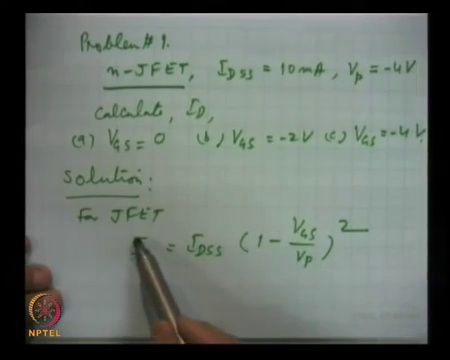 Problem # 1.
n-JFET, I_DSS = 10 mA, V_p = -4V
Calculate, I_D,
(a) V_GS = 0 (b) V_GS = -2V (c) V_GS = -4V.
Solution:
For JFET
= I_DSS (1 - V_GS/V_p)^2
NPTEL